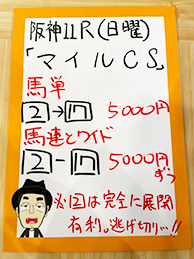 阪神11R(日曜)
「マイルCS」
馬単
2→17 5000円
馬連とワイド
2-17 5000円
ずつ
※2は完全に展開
有利。逃げ切り…!!